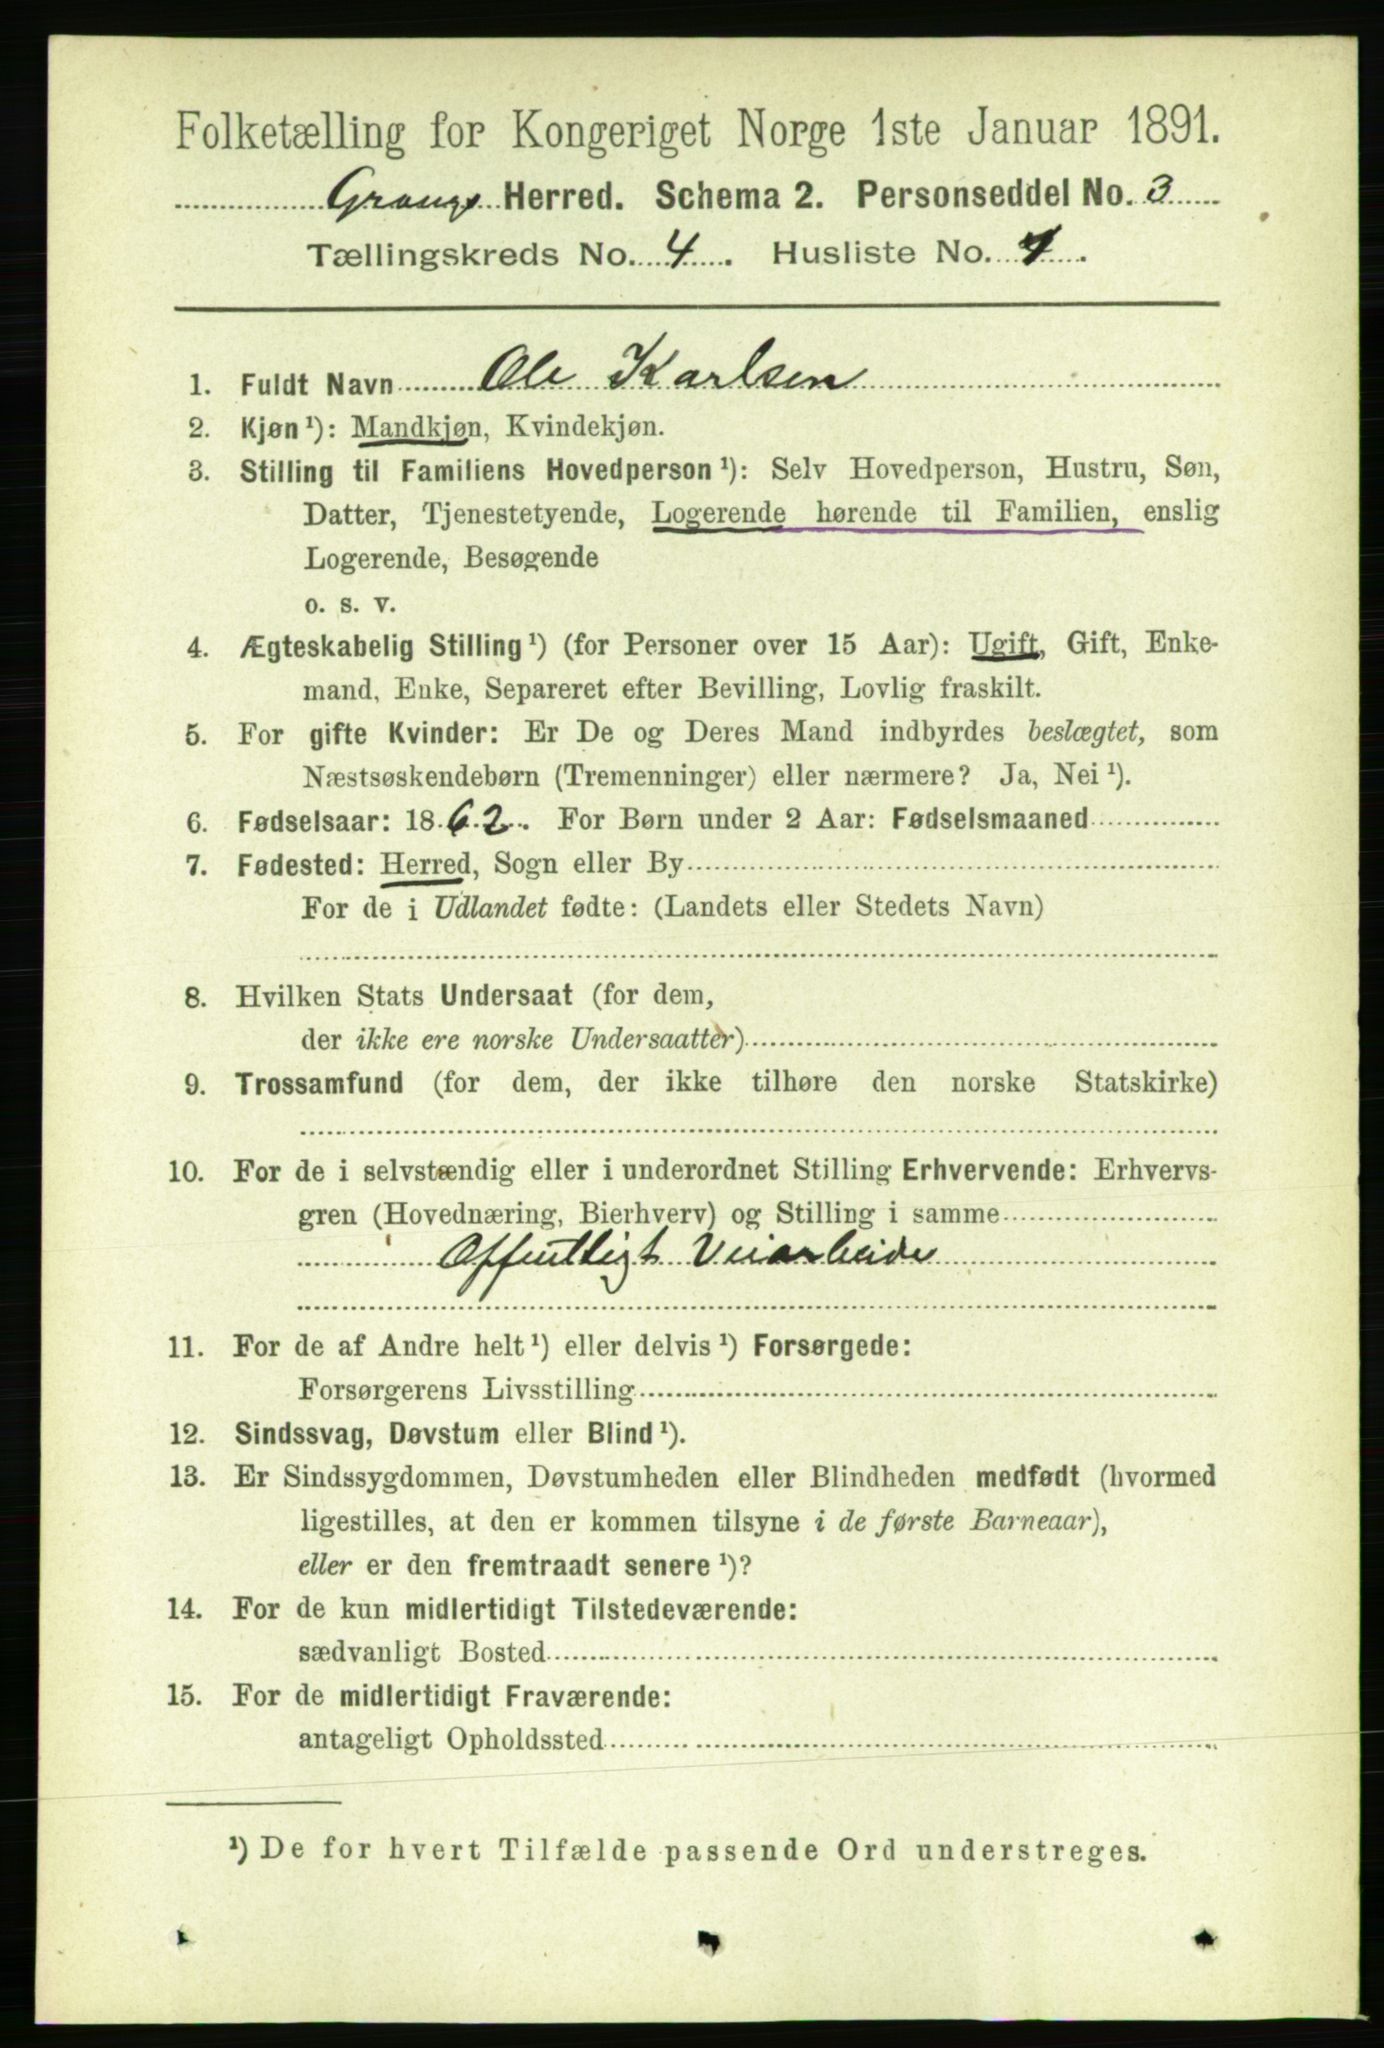 Folketælling for Kongeriget Norge 1ste Januar 1891.
Herred. Schema 2. Personseddel No. 3
Tællingskreds No. 4. Husliste No.
1. Fuldt Navn Ole Karlsen
2. Kjøn ¹): Mandkjøn, Kvindekjøn.
3. Stilling til Familiens Hovedperson ¹): Selv Hovedperson, Hustru, Søn,
Datter, Tjenestetyende, Logerende hørende til Familien, enslig
Logerende, Besøgende
o. s. v.
4. Ægteskabelig Stilling ¹) (for Personer over 15 Aar): Ugift, Gift, Enke-
mand, Enke, Separeret efter Bevilling, Lovlig fraskilt.
5. For gifte Kvinder: Er De og Deres Mand indbyrdes beslægtet, som
Næstsøskendebørn (Tremenninger) eller nærmere? Ja, Nei ¹).
6. Fødselsaar: 1862. For Børn under 2 Aar: Fødselsmaaned
7. Fødested: Herred, Sogn eller By
For de i Udlandet fødte: (Landets eller Stedets Navn)
8. Hvilken Stats Undersaat (for dem,
der ikke ere norske Undersaatter)
9. Trossamfund (for dem, der ikke tilhøre den norske Statskirke)
10. For de i selvstændig eller i underordnet Stilling Erhvervende: Erhvervs-
gren (Hovednæring, Bierhverv) og Stilling i samme
Offentligt Veiarbeide
11. For de af Andre helt ¹) eller delvis ¹) Forsørgede:
Forsørgerens Livsstilling
12. Sindssvag, Døvstum eller Blind ¹).
13. Er Sindssygdommen, Døvstumheden eller Blindheden medfødt (hvormed
ligestilles, at den er kommen tilsyne i de første Barneaar),
eller er den fremtraadt senere ¹)?
14. For de kun midlertidigt Tilstedeværende:
sædvanligt Bosted
15. For de midlertidigt Fraværende:
antageligt Opholdssted
¹) De for hvert Tilfælde passende Ord understreges.